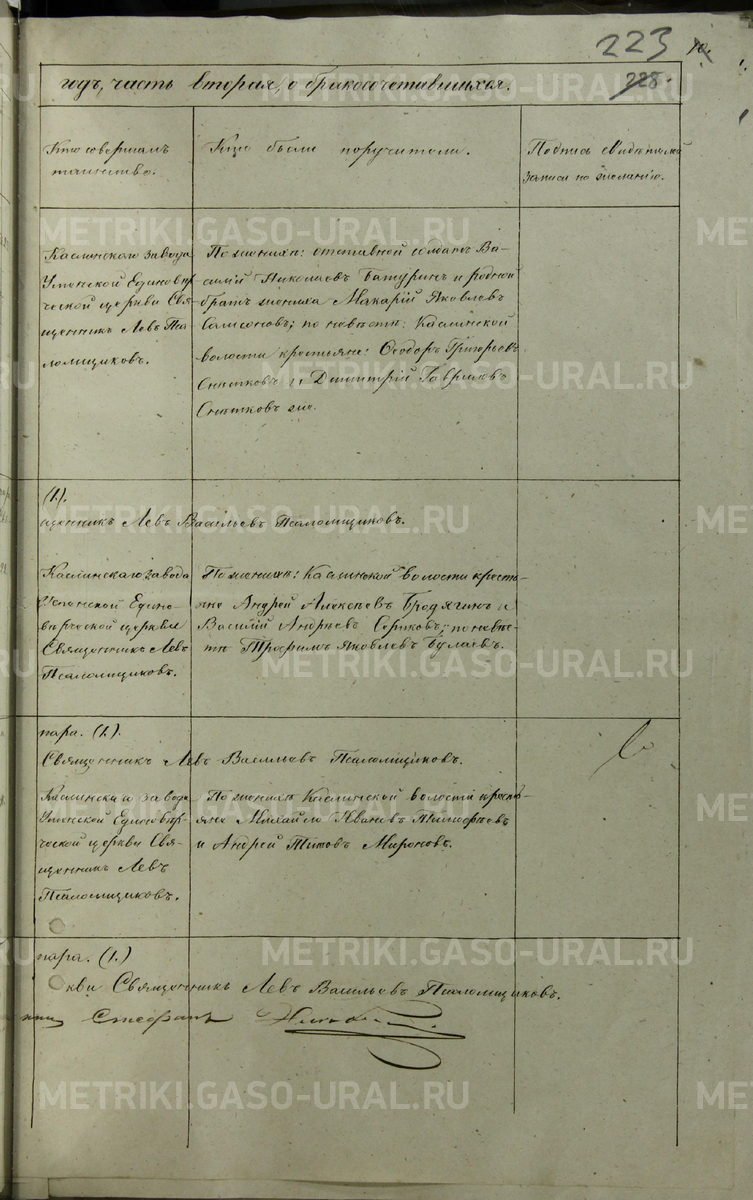 223
228.
годъ, часть вторая, о бракосочетавшихся.
Кто совершалъ
таинство.
Кто были поручители.
Подпись свидѣтелей
записи по желанію.
Каслинскаго завода
Успенской Единовѣр-
ческой церкви Свя-
щенникъ Левъ Пса-
ломщиковъ.
По женихѣ: отставной солдатъ Ва-
силій Николаевъ Батуринъ и родной
братъ жениха Макарій Яковлевъ
Самсоновъ; по невѣстѣ: Каслинской
волости крестьяне: Ѳеодоръ Григорьевъ
Снѣтковъ и Димитрій Гавриловъ
Снѣтковъ же.
(1).
щенникъ Левъ Васильевъ Псаломщиковъ.
Каслинскаго завода
Успенской Едино-
вѣрческой церкви
Священникъ Левъ
Псаломщиковъ.
По женихѣ: Каслинской волости кресть-
яне Андрей Алексѣевъ Бродягинъ и
Василій Андреевъ Сериковъ; по невѣс-
тѣ Трофимъ Яковлевъ Булаевъ.
пара. (1).
Священникъ Левъ Васильевъ Псаломщиковъ.
Каслинскаго завода
Успенской Единовѣр-
ческой церкви Свя-
щенникъ Левъ
Псаломщиковъ.
По женихѣ Каслинской волости кресть-
яне Михайло Ивановъ
и Андрей Титовъ Мироновъ.
пара. (1.)
кви Священникъ Левъ Васильевъ Псаломщиковъ.
Стефанъ
METRIKI.GASO-URAL.RU